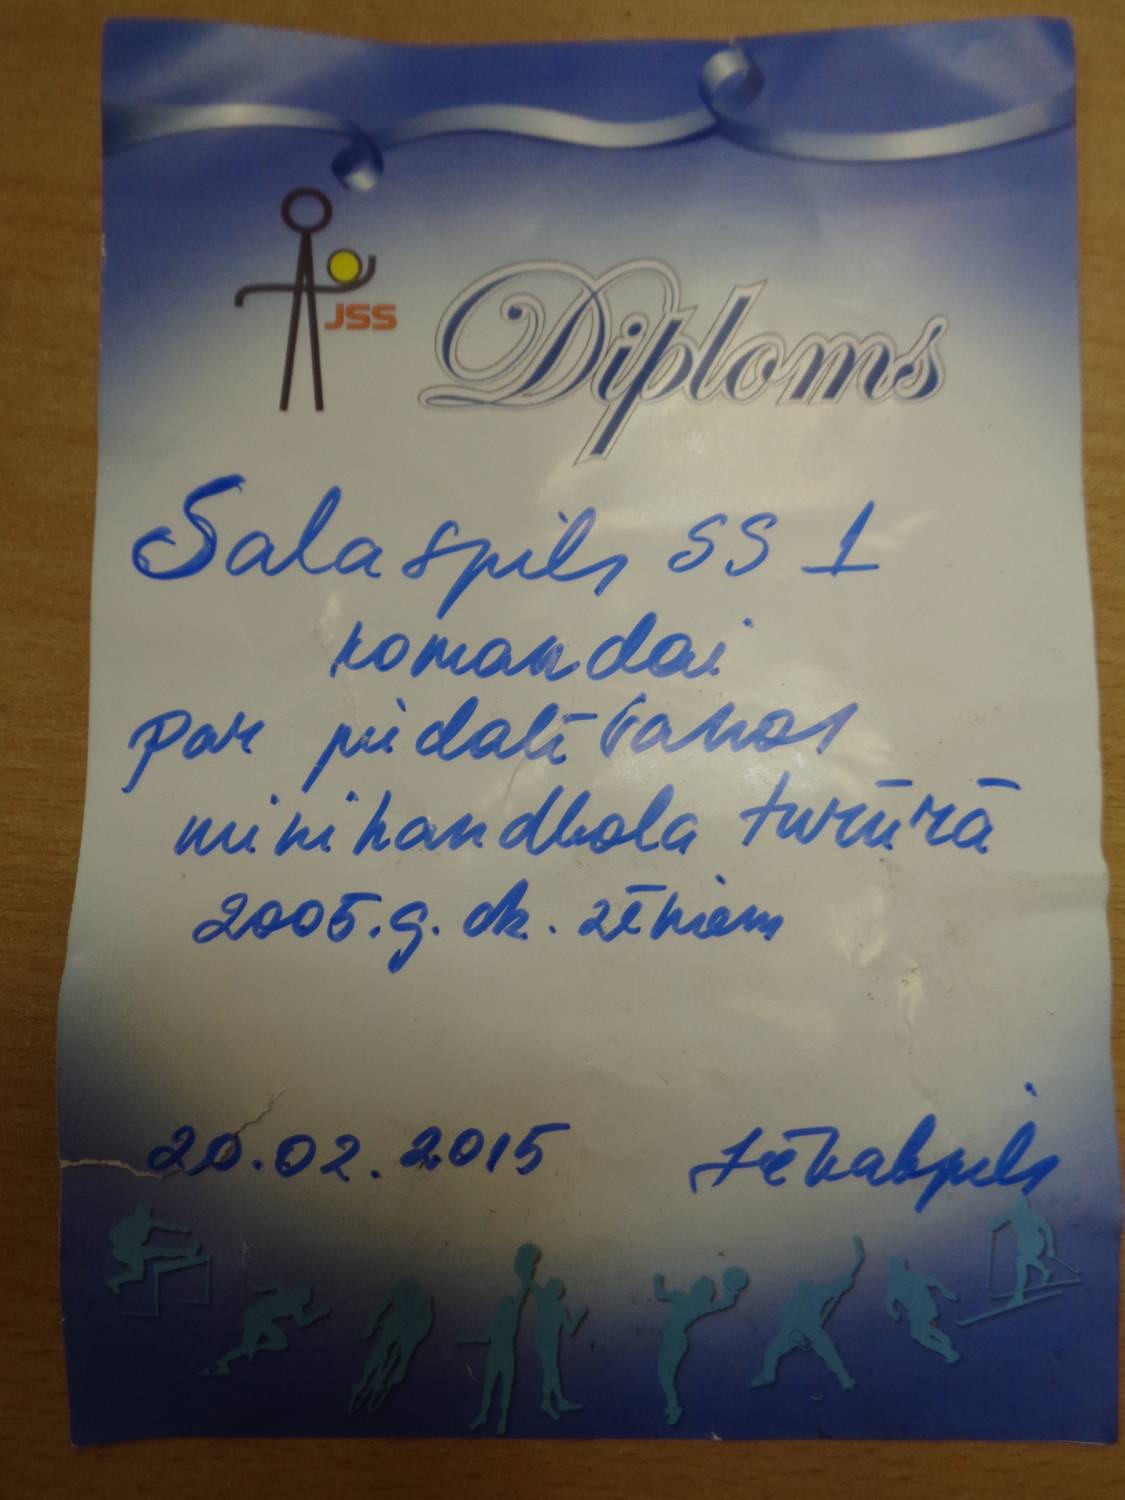 JSS
Diploms
Salaspils SS 1
komandai
par piedalīšanos
minihandbola turnīrā
2005.g.dz. zēniem
20.02.2015 Jēkabpils